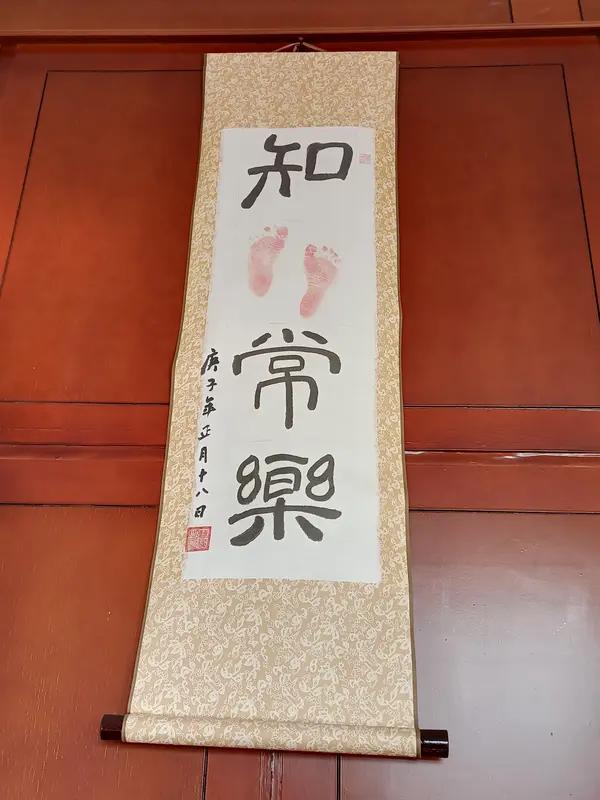 知
常
樂
庚子年正月十八日